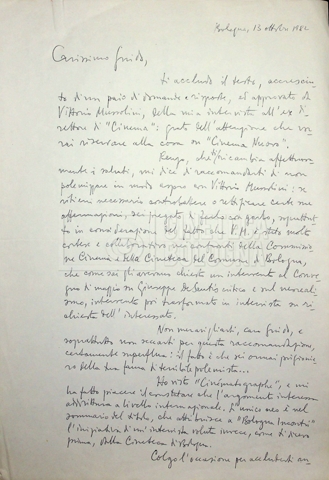 Bologna, 13 ottobre 1982
Carissimo Guido,
ti accludo il testo, accresciu-
to di un paio di domande e risposte, ed approvato da
Vittorio Mussolini, della mia intervista all'ex di-
rettore di "Cinema": grato dell'attenzione che vor-
rai riservare alla cosa su "Cinema Nuovo".
Renzo, che ti ricambia affettuosa-
mente i saluti, mi dice di raccomandarti di non
polemizzare in modo aspro con Vittorio Mussolini: se
ritieni necessario controbattere o rettificare certe sue
affermazioni, sei pregato di farlo con garbo, soprattut-
to in considerazione del fatto che V.M. è stato molto
cortese e collaborativo nei confronti della Commissio-
ne Cinema e della Cineteca del Comune di Bologna,
che come sai gli avevano chiesto un intervento al Conve-
gno di maggio su Giuseppe De Santis critico e sul neoreali-
smo, intervento poi trasformato in intervista su ri-
chiesta dell'interessato.
Non meravigliarti, caro Guido, e
soprattutto non seccarti per questa raccomandazione,
certamente superflua: il fatto è che sei ormai prigionie-
ro della tua fama di terribile polemista...
Ho visto "Cinématographe", e mi
ha fatto piacere il constatare che l'argomento interessa
addirittura a livello internazionale. L'unico neo è nel
sommario del titolo, che attribuisce a "Bologna Incontri"
l'iniziativa di un'intervista voluta invece, come ti dicevo
prima, dalla Cineteca di Bologna.
Colgo l'occasione per accluderti an-